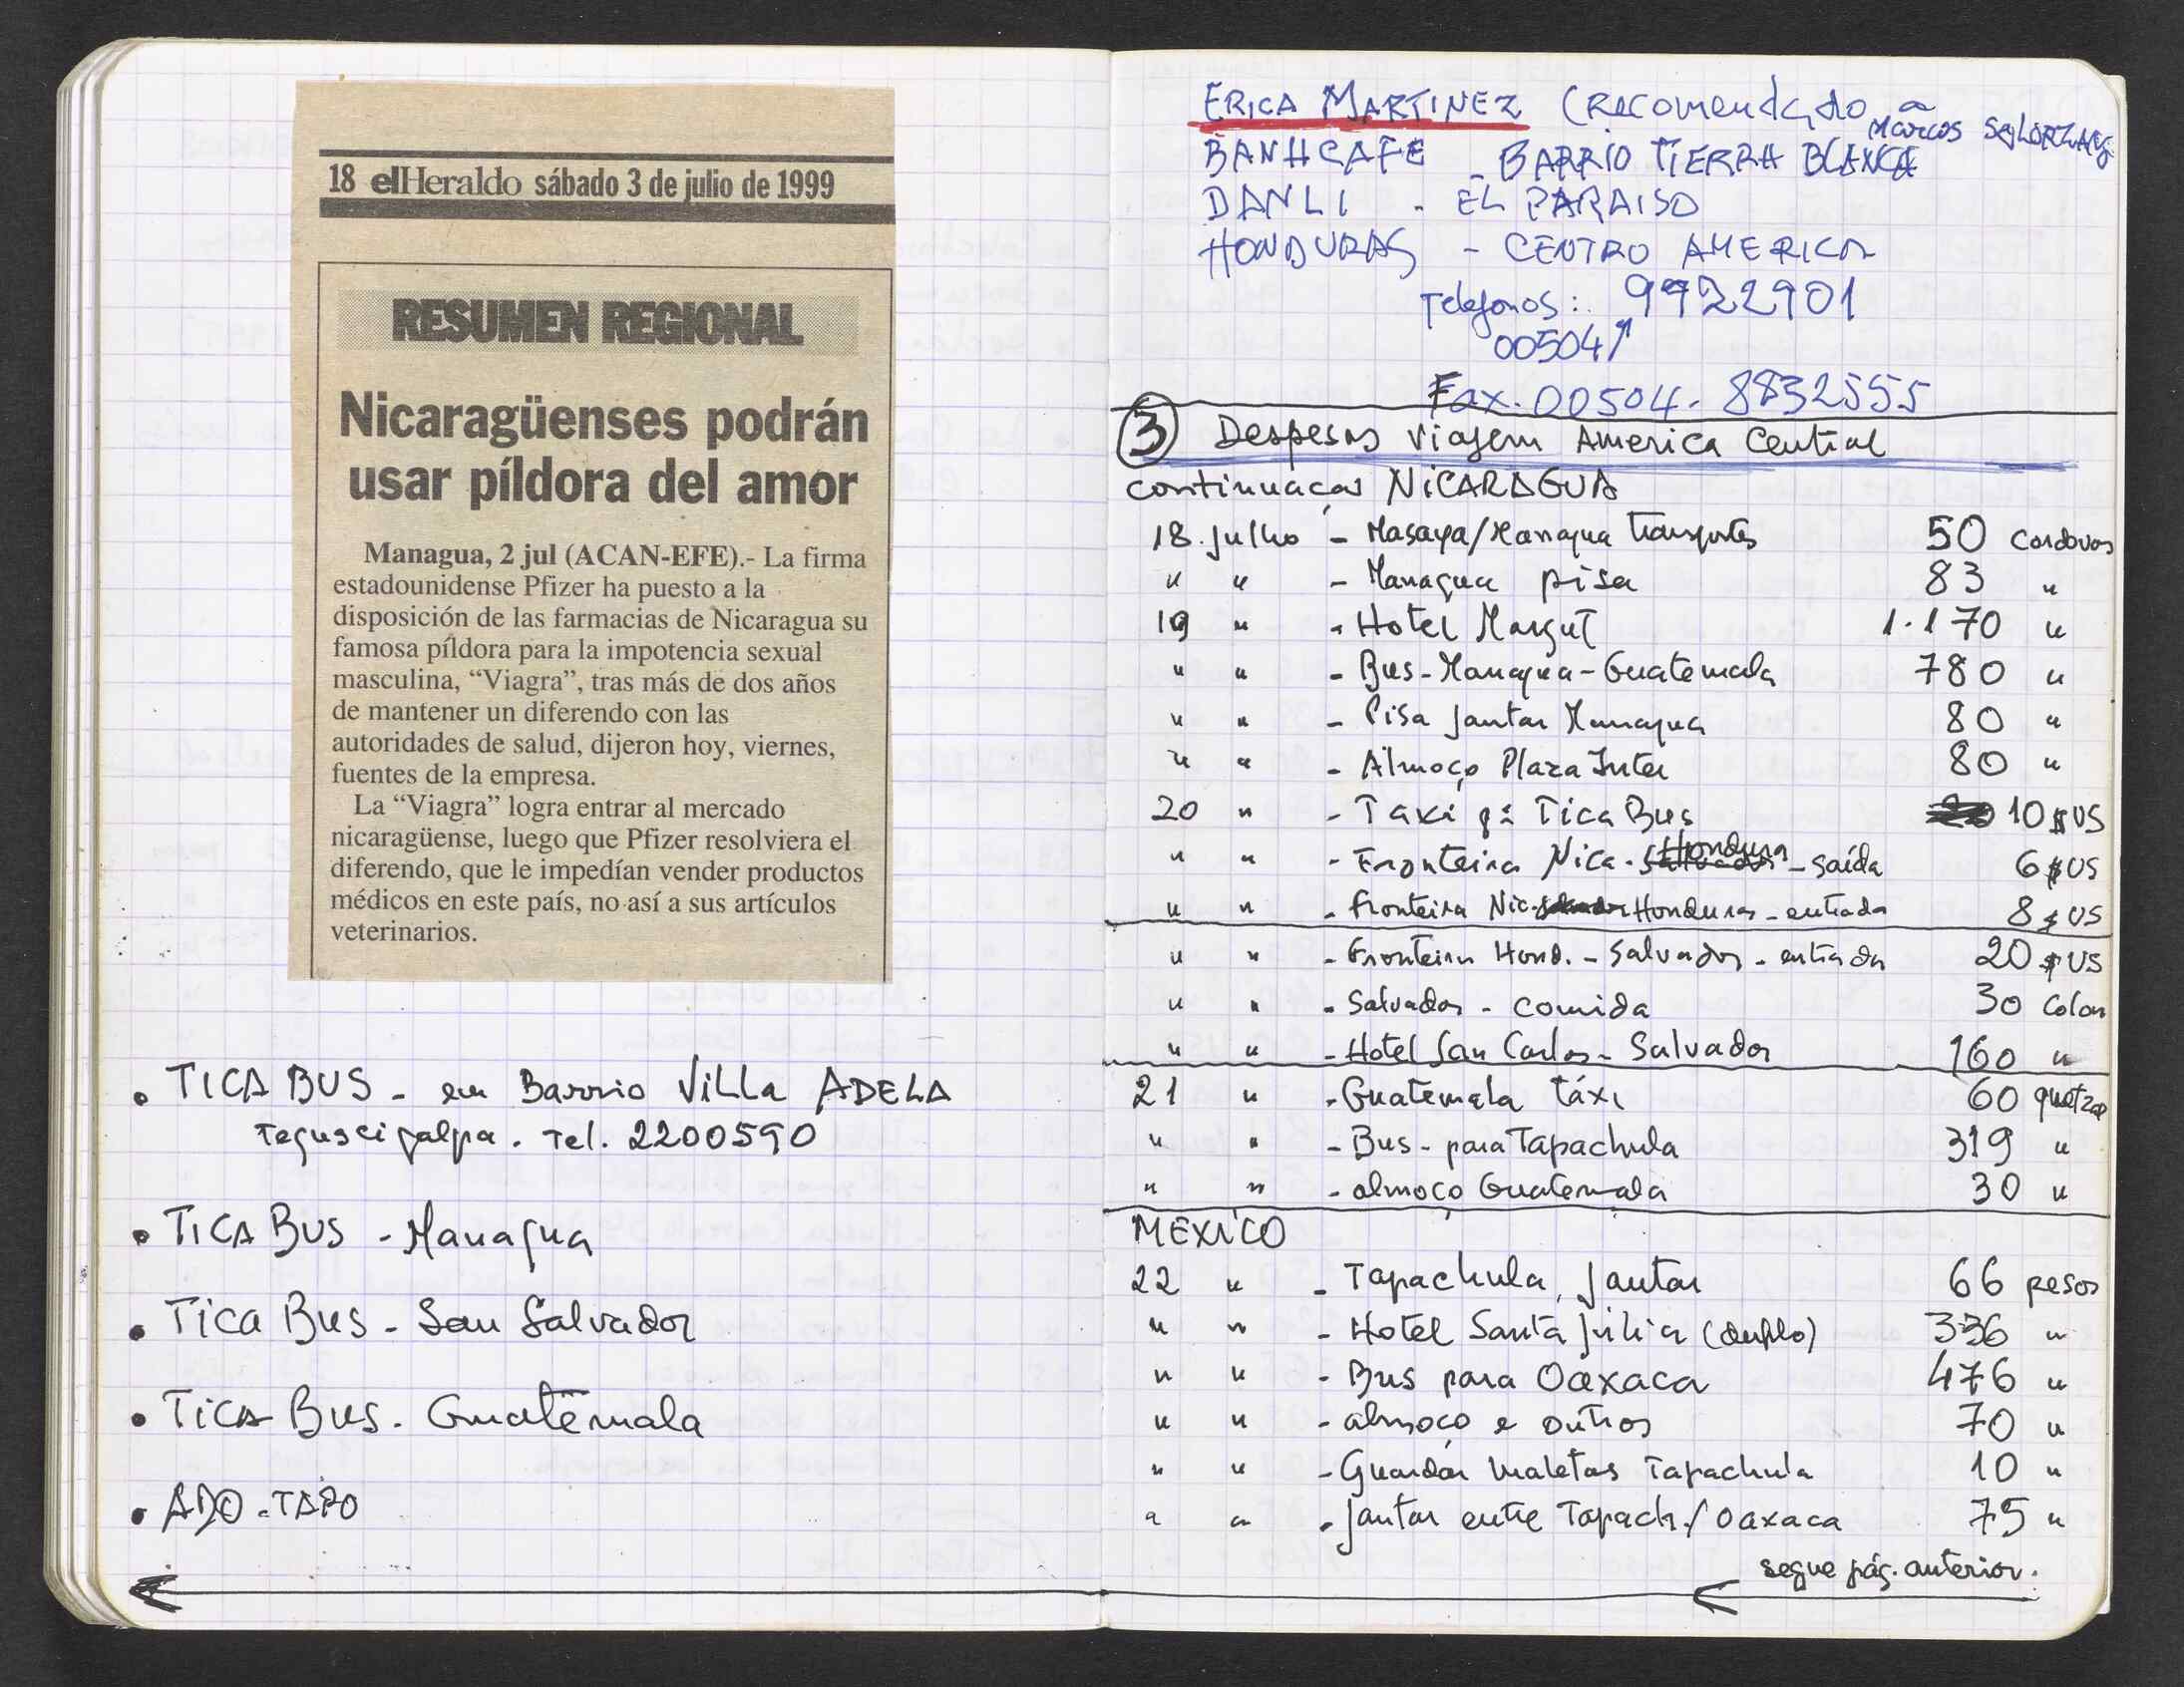 18 elHeraldo sábado 3 de julio de 1999
RESUMEN REGIONAL
Nicaragüenses podrán
usar píldora del amor
Managua, 2 jul (ACAN-EFE).- La firma
estadounidense Pfizer ha puesto a la
disposición de las farmacias de Nicaragua su
famosa píldora para la impotencia sexual
masculina, “Viagra”, tras más de dos años
de mantener un diferendo con las
autoridades de salud, dijeron hoy, viernes,
fuentes de la empresa.
La “Viagra” logra entrar al mercado
nicaragüense, luego que Pfizer resolviera el
diferendo, que le impedían vender productos
médicos en este país, no así a sus artículos
veterinarios.
• TICA BUS - en Barrio Villa ADELA
Tegucigalpa. Tel. 2200590
• TICA BUS - Managua
• Tica Bus - San Salvador
• TICA Bus. Guatemala
• ADO - TAPO
ERICA MARTINEZ (recomendado a
Marcos
BANHCAFE - BARRIO TIERRA BLANCA
DANLI - EL PARAISO
HONDURAS - CENTRO AMERICA
Telefonos: 9922901
00504↑
Fax. 00504. 8832555
③ Despesas Viagem America Central
continuaças NICARAGUA
18. julho - Masaya/Managua transportes 50 Cordovas
" " - Managua pisa 83 "
19 " - Hotel Margut 1.170 "
" " - Bus - Managua - Guatemala 780 "
" " - Pisa jantar Managua 80 "
" " - Almoço Plaza Inter 80 "
20 " - Taxi pª Tica Bus 10 $US
" " - Fronteira Nica. Hondura - saída 6 $US
" " - fronteira Nic. Honduras - entrada 8 $US
" " - Fronteira Hond. - Salvador - entrada 20 $US
" " - Salvador - comida 30 Colon
" " - Hotel San Carlos - Salvador 160 "
21 " - Guatemala táxi 60 quetzal
" " - Bus - para Tapachula 319 "
" " - almoço Guatemala 30 "
MEXICO
22 " - Tapachula, jantar 66 pesos
" " - Hotel Santa Julia (duplo) 336 "
" " - Bus para Oaxaca 476 "
" " - almoço e outros 70 "
" " - Guardar maletas Tapachula 10 "
" " - jantar entre Tapach./Oaxaca 75 "
segue pág. anterior.